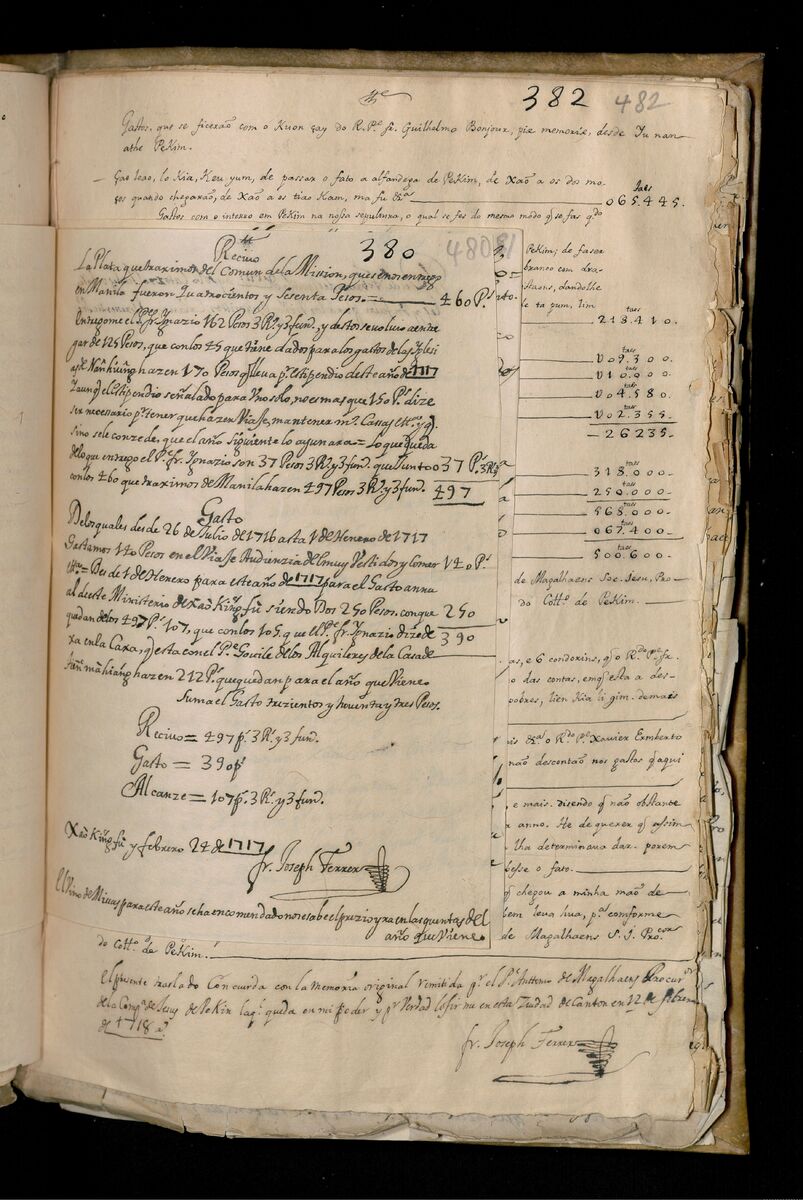 382 482
Gastos, que se ficerão com o Kuon çay do R. P.e fr. Guilhelmo Bonjour, piæ memoriæ, desde Iu nan
athe PeKim.
— Gao leao, lo Kia, Keu yum, de passar o fato a alfandega de PeKim, de Xão a os dos mo-
ços quando chegarão, de Xão a os tiao Kam, ma fu &.a
taes
065.445.
Gastos com o interro em PeKim na nossa sepultura, o qual se fes do mesmo módo q se fas q.do
380 480
Recivo
La Plata que traximos del Comun de la Mission, que se nos entrego
en Manila fueron Quatrocientos y Sesenta Pesos. — 460 P.s
Entregome el P.e fr. Ygnazio 162 Pesos 3 R.s y 3 fun.,
gar de 125 Pesos, que con los 45 que tiene dados para los gastos de las Iglesi
as de Nan hiung hazen 170 Pesos q lleva p.r estipendio deste año de 1717
el Estipendio señalado para Uno solo, no es mas que 150 P.s dize
ser necesario p.r tener que hazer Viaje, mantener m.s Casas
sino se le conzede, que el año siguiente lo ayunara = Lo que queda
de lo que entrego el P.e fr. Ygnazio son 37 Pesos 3 R.s y 3 fun. que Junto 037 P.s 3 R.s
con los 460 que traximos de Manila hazen 497 Pesos 3 R.s y 3 fun. 497
Gasto
De los quales desde 26 de Julio de 1716 asta 1 de Henero de 1717
Gastamos 140 Pesos en el Viaje Audienzia del muy Vestidos y comer 140 P.s
Des de 1 de Henero para este año de 1717 para el Gasto annu
al deste Ministerio de Xao King fu siendo Dos 250 Pesos, con que 250
quedan de los 497 P.s 107, que con los 105 que el P.e fr. Ygnazio dize de
390
xa en la Caxa, q esta con el P.e Goville de los Alquileres de la Casa de
hazen 212 P.s que quedan para el año que Viene
Suma el Gasto trezientos y noventa y tres Pesos.
Recivo = 497 p.s 3 R.s y 3 fun.
Gasto = 390 p.s
Alcanze = 107 p.s 3 R.s y 3 fun.
Xao King fu y febrero 24 de 1717
fr. Joseph Ferrer
El Vino de Misas para este año se ha encomendado no se sabe el prezio yra en las quentas del
año que Viene.
PeKim; de faser
branco com dra-
dandolhe
taes
218.410.
taes
009.300.
010.000.
004.580.
002.355.
—26235.
taes
318.000.
taes
250.000.
taes
568.000.
067.400.
taes
500.600.
de Magalhaens Soc. Iesu, Pro-
do Coll.o de PeKim.
as, e 6 condorins, q o R.do P.e fr.
o das contas, em q esta a des-
pobres, tien Kia li gim. demais
is &.a o R.do P.e Xavier Ermberto
não descontão nos gastos q aqui
, e mais. disendo q não obstante
anno. He de querer q assim
lha determinava dar. porem
besse o fato.
q chegou a minha mão de
bem leva hua, p.a comforme
de Magalhaens S. J. Pro.cor
do Coll.o de PeKim.
El presente traslado Concuerda con la memoria original remitida p.r el P. Antonio de Magalhaens Procur.or
de la Comp.a de Jesus de PeKin la q.l queda en mi poder y p.r Verdad lo firme en esta Ziudad de Canton en 12 de febrero
de 1718 a.s
fr. Joseph Ferrer